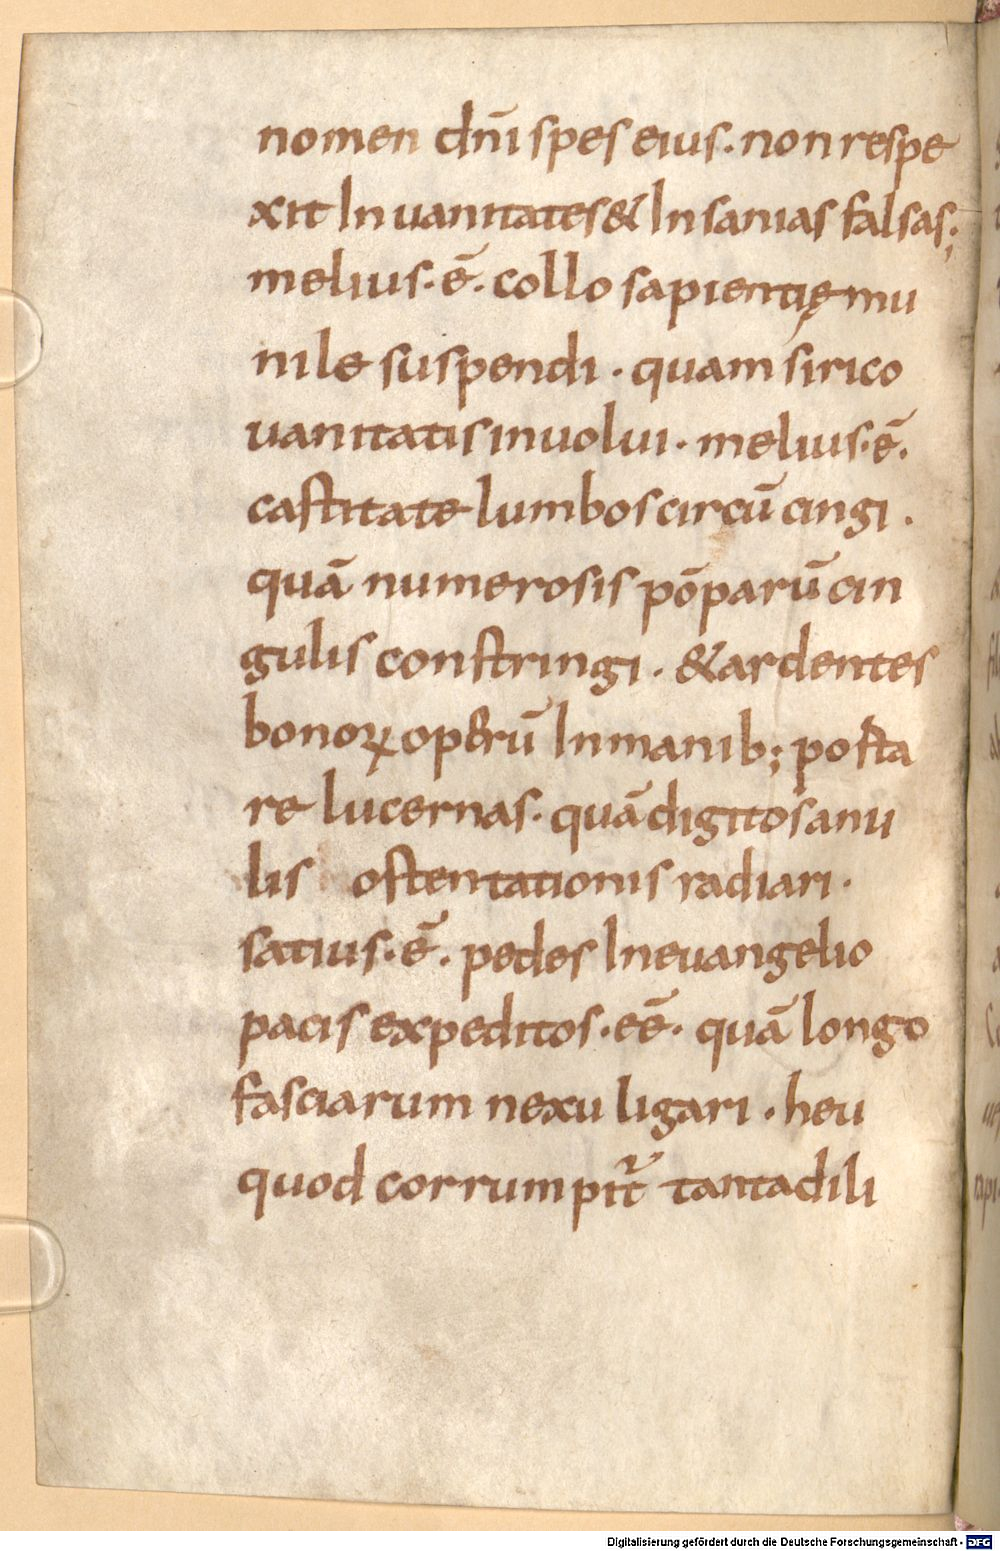 nomen dn̄i spes eius· non respe
xit In uanitates & Insanias falsas·,
melius· ē· collo sapientię mu
nile suspendi · quam sirico
uanitatis inuolui· melius· ē·
castitate lumbos circū cingi ·
quā numerosis pōparū cin
gulis constringi · & ardentes
bonoꝝ operū In manib; posta
re lucernas· quā digitos anu
lis ostentationis radiari·
satius· ē· pedes In euangelio
pacis expeditos· eē· quā longo
fasciarum nexu ligari · heu
quod corrumpit᷑ tanta dili
Digitalisierung gefördert durch die Deutsche Forschungsgemeinschaft - DFG